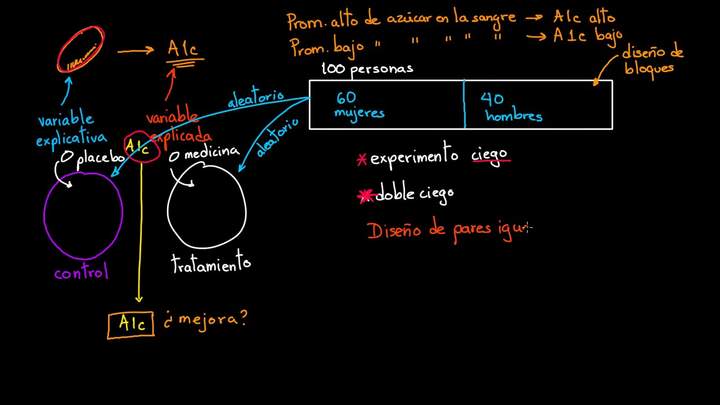 Prom. alto de azúcar en la sangre → A1c alto
Prom. bajo " " " " " → A1c bajo
A1c
diseño de
bloques
100 personas
aleatorio
60
mujeres
40
hombres
variable
explicativa
variable
explicada
aleatorio
A1c
placebo
medicina
* experimento ciego
* doble ciego
Diseño de pares igu
control
tratamiento
A1c ¿mejora?